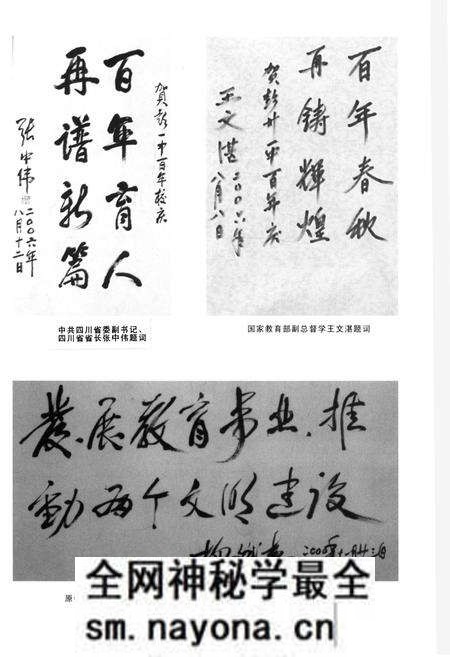 百年育人
再谱新篇
贺彭一中百年校庆
张中伟
二〇〇六年
八月十二日
中共四川省委副书记、
四川省省长张中伟题词
百年春秋
再铸辉煌
百年庆
王文湛
二〇〇六年
八月八日
国家教育部副总督学王文湛题词
發展教育事业,推
動两个文明建设
原
全网神秘学最全
sm.nayona.cn